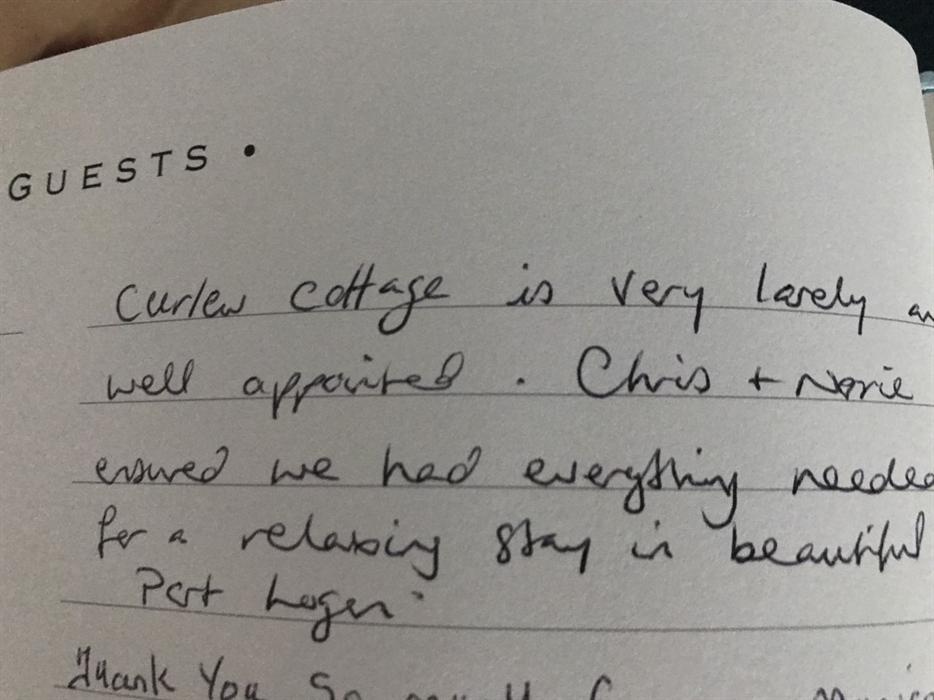 GUESTS •
Curlew Cottage is very lovely an
well appointed . Chris + Norie
ensured we had everything needed
for a relaxing stay in beautiful
Port Logan.
Thank You So much